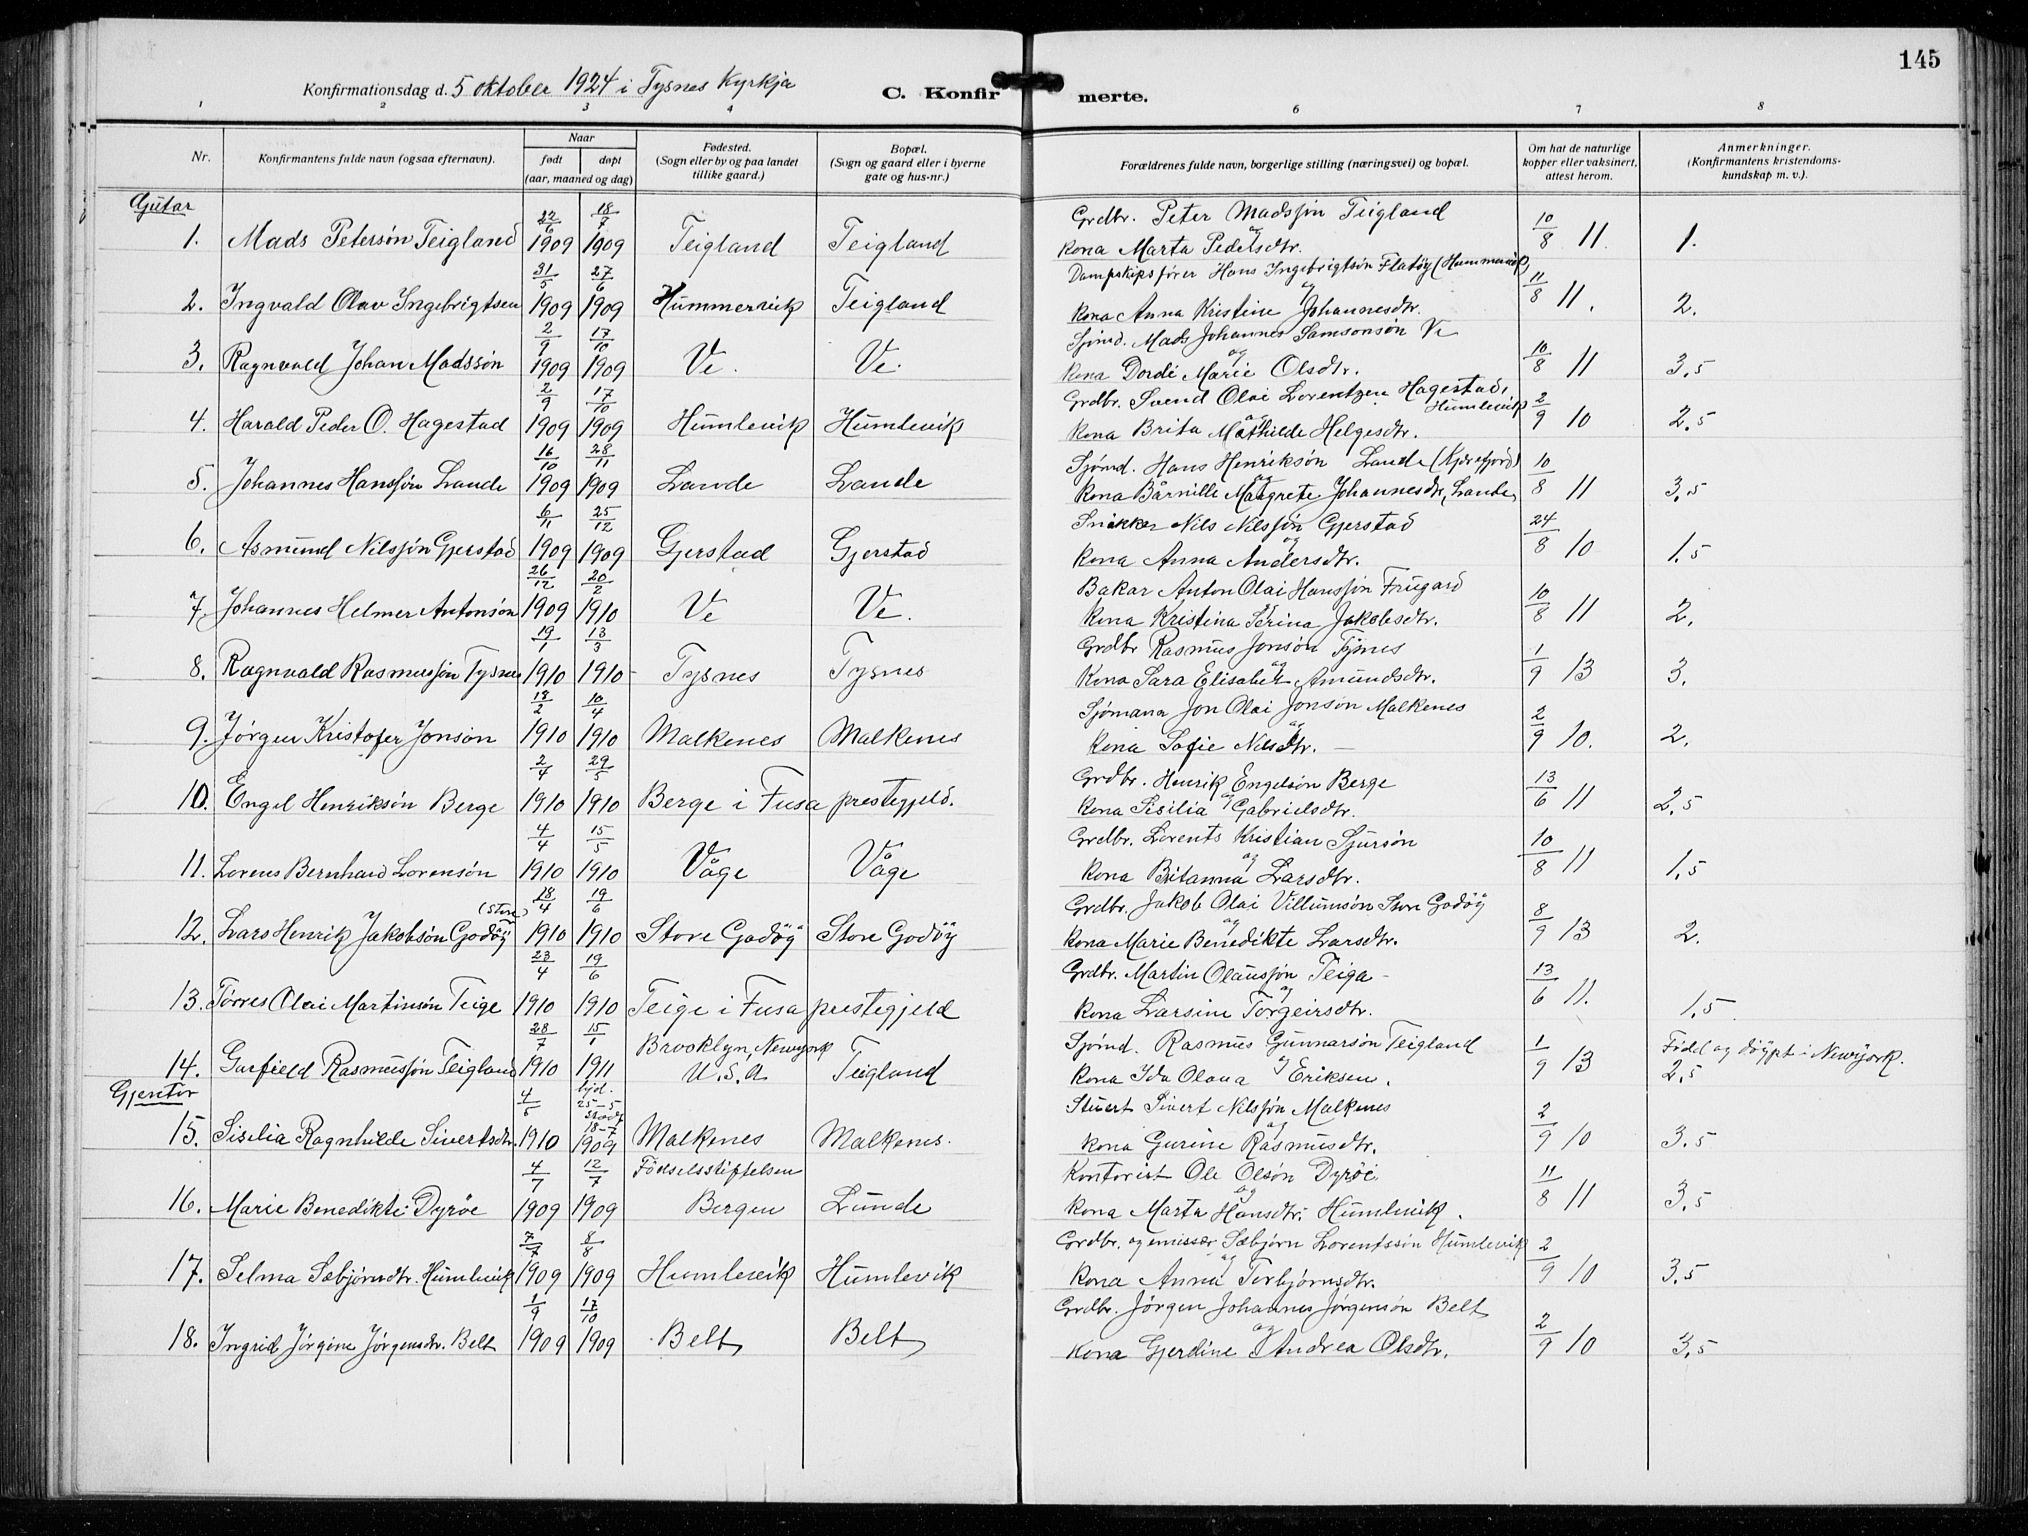 145
Konfirmationsdag d. 5 oktober 1924 i Tysnes Kyrkja
C. Konfirmerte.
1 2 3 4 6 7 8
Nr. | Konfirmantens fulde navn (ogsaa efternavn). | Naar født døpt (aar, maaned og dag) | Fødested. (Sogn eller by og paa landet tillike gaard.) | Bopæl. (Sogn og gaard eller i byerne gate og hus-nr.) | Forældrenes fulde navn, borgerlige stilling (næringsvei) og bopæl. | Om hat de naturlige kopper eller vaksinert, attest herom. | Anmerkninger. (Konfirmantens kristendomskundskap m. v.).
Gutar
1. Mads Petersøn Teigland | 22/6 1909 | 18/7 1909 | Teigland | Teigland | Grdbr. Peter Madssøn Teigland og kona Marta Pedersdtr. | 10/8 11. | 1.
2. Ingvald Olav Ingebrigtsen | 31/5 1909 | 27/6 1909 | Hummervik | Teigland | Dampskipsfører Hans Ingebrigtsøn Flatøy (Hummervik) og kona Anna Kristine Johannesdtr. | 11/8 11. | 2.
3. Ragnvald Johan Madssøn | 2/9 1909 | 17/10 1909 | Ve. | Ve. | Sjømd. Mads Johannes Samsonsøn Ve og kona Dordi Marie Olsdtr. | 10/8 11 | 3.5
4. Harald Peder O. Hagestad | 2/9 1909 | 17/10 1909 | Humlevik | Humlevik | Grdbr. Svend Olai Lorentzen Hagestad, Humlevik og kona Brita Mathilde Helgesdtr. | 2/9 10 | 2.5
5. Johannes Hanssøn Lande | 16/10 1909 | 28/11 1909 | Lande | Lande | Sjømd. Hans Henriksøn Lande og kona Margrete Johannesdtr, Lande | 10/8 11 | 3.5
6. Asmund Nilssøn Gjerstad | 6/11 1909 | 25/12 1909 | Gjerstad | Gjerstad | Snikkar Nils Nilssøn Gjerstad og kona Anna Andersdtr. | 24/8 10 | 1.5
7. Johannes Helmer Antonsøn | 26/12 1909 | 20/2 1910 | Ve | Ve. | Bakar Anton Olai Hanssøn Frugard og kona Kristina Serina Jakobsdtr. | 10/8 11 | 2.
8. Ragnvald Rasmussøn Tysnes | 19/1 1910 | 13/3 1910 | Tysnes | Tysnes | Grdbr Rasmus Jonsøn Tysnes og Kona Sara Elisabet Amundsdtr. | 1/9 13 | 3.
9. Jørgen Kristofer Jonsøn | 18/2 1910 | 10/4 1910 | Malkenes | Malkenes | Sjømann Jon Olai Jonsøn Malkenes og Kona Sofie Nilsdtr. | 2/9 10. | 2.
10. Engel Henriksøn Berge | 2/4 1910 | 29/5 1910 | Berge i Fusa prestegjeld. | Grdbr. Henrik Engelsøn Berge og kona Sisilia Gabrielsdtr. | 13/6 11 | 2.5
11. Lorens Bernhard Lorensøn | 4/4 1910 | 15/5 1910 | Våge | Våge | Grdbr. Lorents Kristian Sjursøn og kona Britanna Larsdtr. | 10/8 11 | 1.5
12. Lars Henrik Jakobsøn (Store) Godøy | 18/4 1910 | 19/6 1910 | Store Godøy | Store Godøy | Grdbr. Jakob Olai Villumsøn Store Godøy og kona Marie Benedikte Larsdtr. | 8/9 13 | 2.
13. Tørres Olai Martinsøn Teige | 23/4 1910 | 19/6 1910 | Teige i Fusa prestegjeld | Grdbr. Martin Olaussøn Teiga og kona Larsine Torgeirsdtr. | 13/6 11. | 1.5
14. Garfield Rasmussøn Teigland | 28/7 1910 | 15/1 1911 | Brooklyn, Newyork U.S.A | Teigland | Sjømd. Rasmus Gunnarsøn Teigland og kona Ida Olana Eriksen. | 1/9 13 | Født og døypt i Newyork. 2.5
Gjentor
15. Sisilia Ragnhilde Sivertsdtr. | 4/5 1910 | hjd. 25-5 stadf. 18-7 1909 | Malkenes | Malkenes. | Stuert Sivert Nilssøn Malkenes og kona Gurine Rasmusdtr. | 2/9 10 | 3.5
16. Marie Benedikte Dyrøe | 4/7 1909 | 12/7 1909 | Fødselsstiftelsen Bergen | Lunde | Kontorist Ole Olsøn Dyrøe og kona Marta Hansdtr. Humlevik. | 11/8 11 | 3.5
17. Selma Sæbjørnsdtr. Humlevik | 7/7 1909 | 8/8 1909 | Humlevik | Humlevik | Grdbr. og emissær Sæbjørn Lorentssøn Humlevik og kona Anna Torbjørnsdtr. | 2/9 10 | 3.5
18. Ingrid Jørgine Jørgensdtr. Belt | 1/9 1909 | 17/10 1909 | Belt | Belt | Grdbr. Jørgen Johannes Jørgensøn Belt og kona Gjerdine Andrea Olsdtr. | 2/9 10 | 3.5